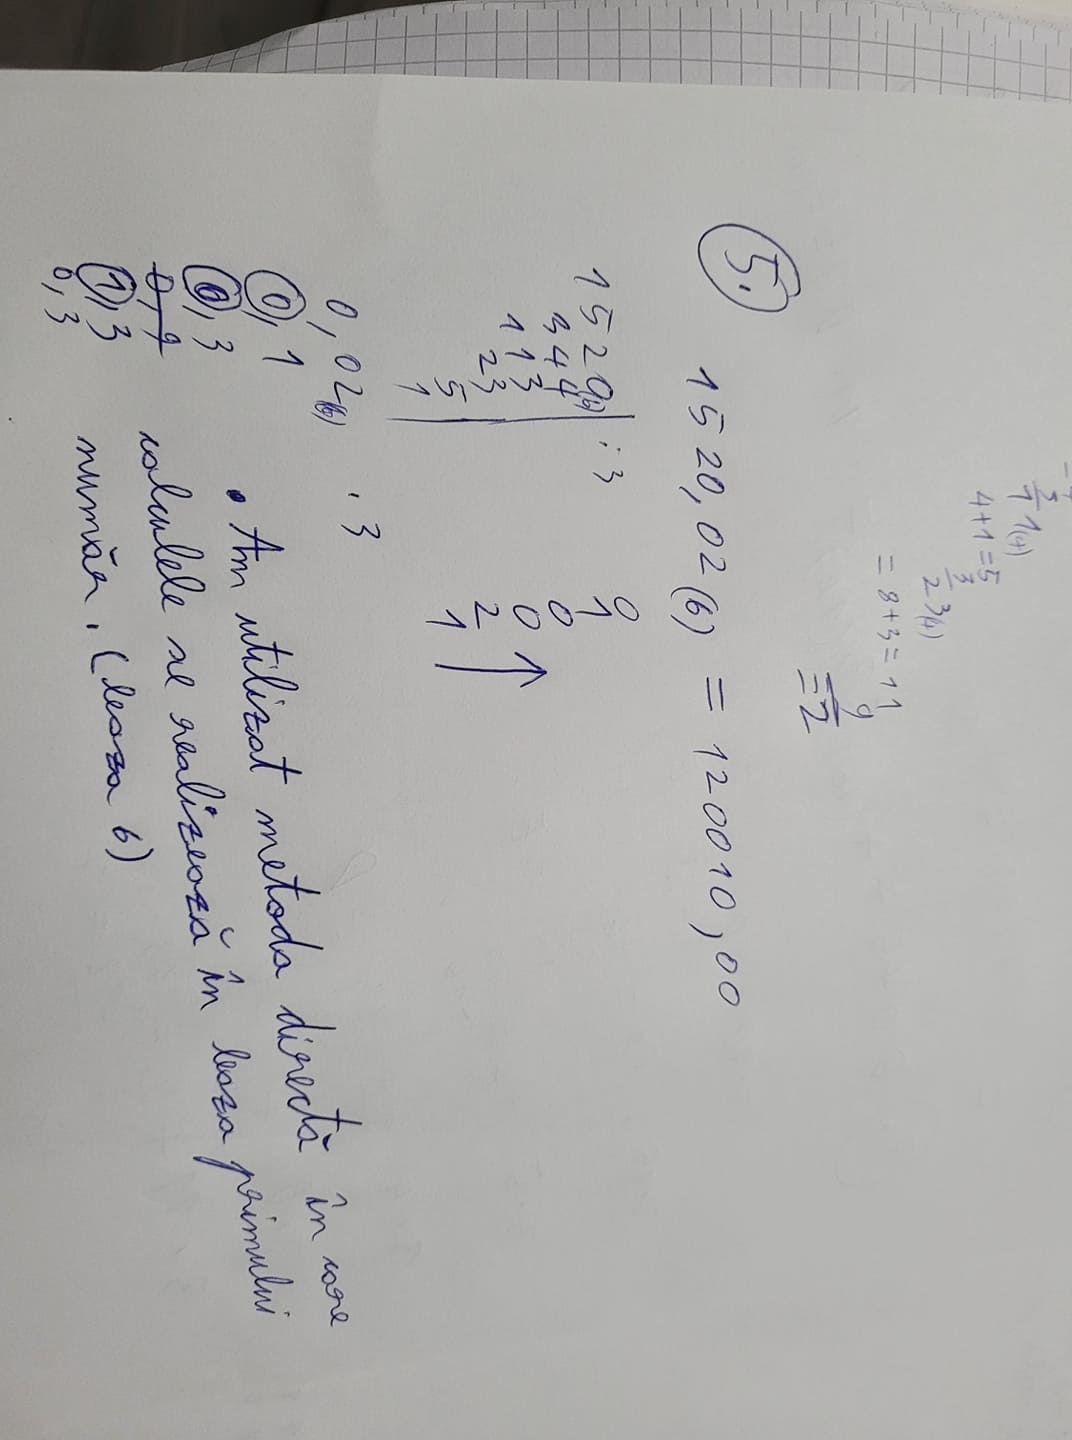 3 1(4)
4+1=5
3
2 3(4)
= 8+3=11
9
=2
5.) 1520,02(6) = 120010,00
1520(6) : 3 0
344 1
113 0
23 0
5 2
1 1
0,02(6) . 3
0,1
0,3
0,9
1,3
0,3
• Am utilizat metoda directă în care
calculele se realizează în baza primului
număr. (baza 6)